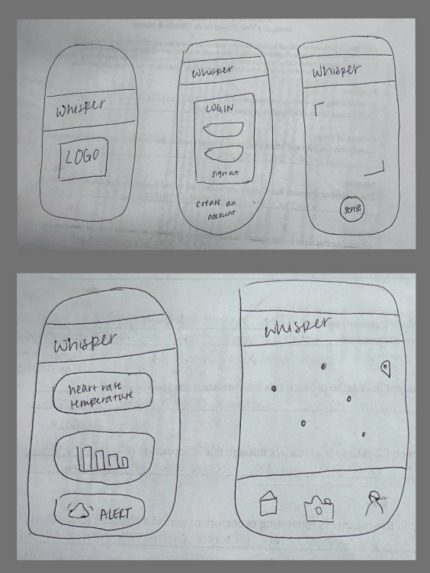 Whisper
LOGO
Whisper
LOGIN
create an
account
Whisper
Whisper
heart rate
temperature
ALERT
Whisper